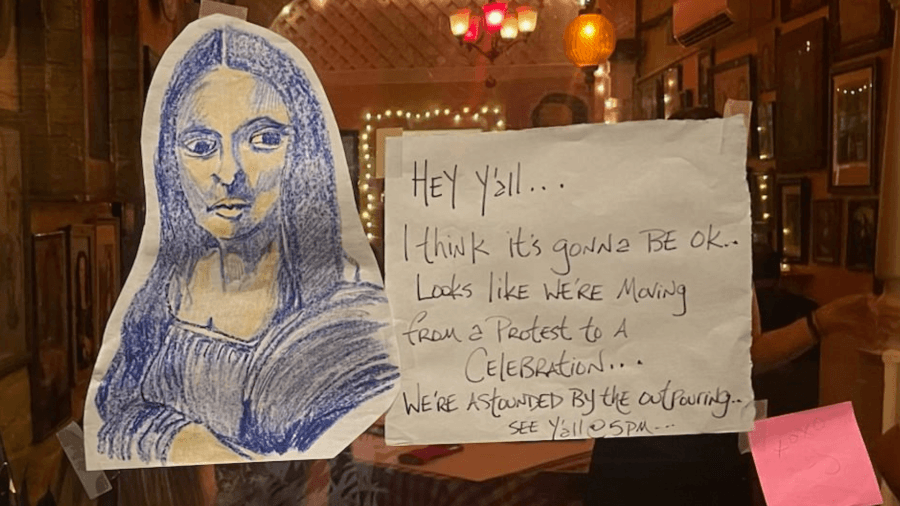 HEY Y'all...
I think it's gonna BE OK..
Looks like WE'RE Moving
from a Protest to A
CELEBRATION...
WE'RE ASTOUNDED By the outpouring..
SEE Y'all @ 5PM...